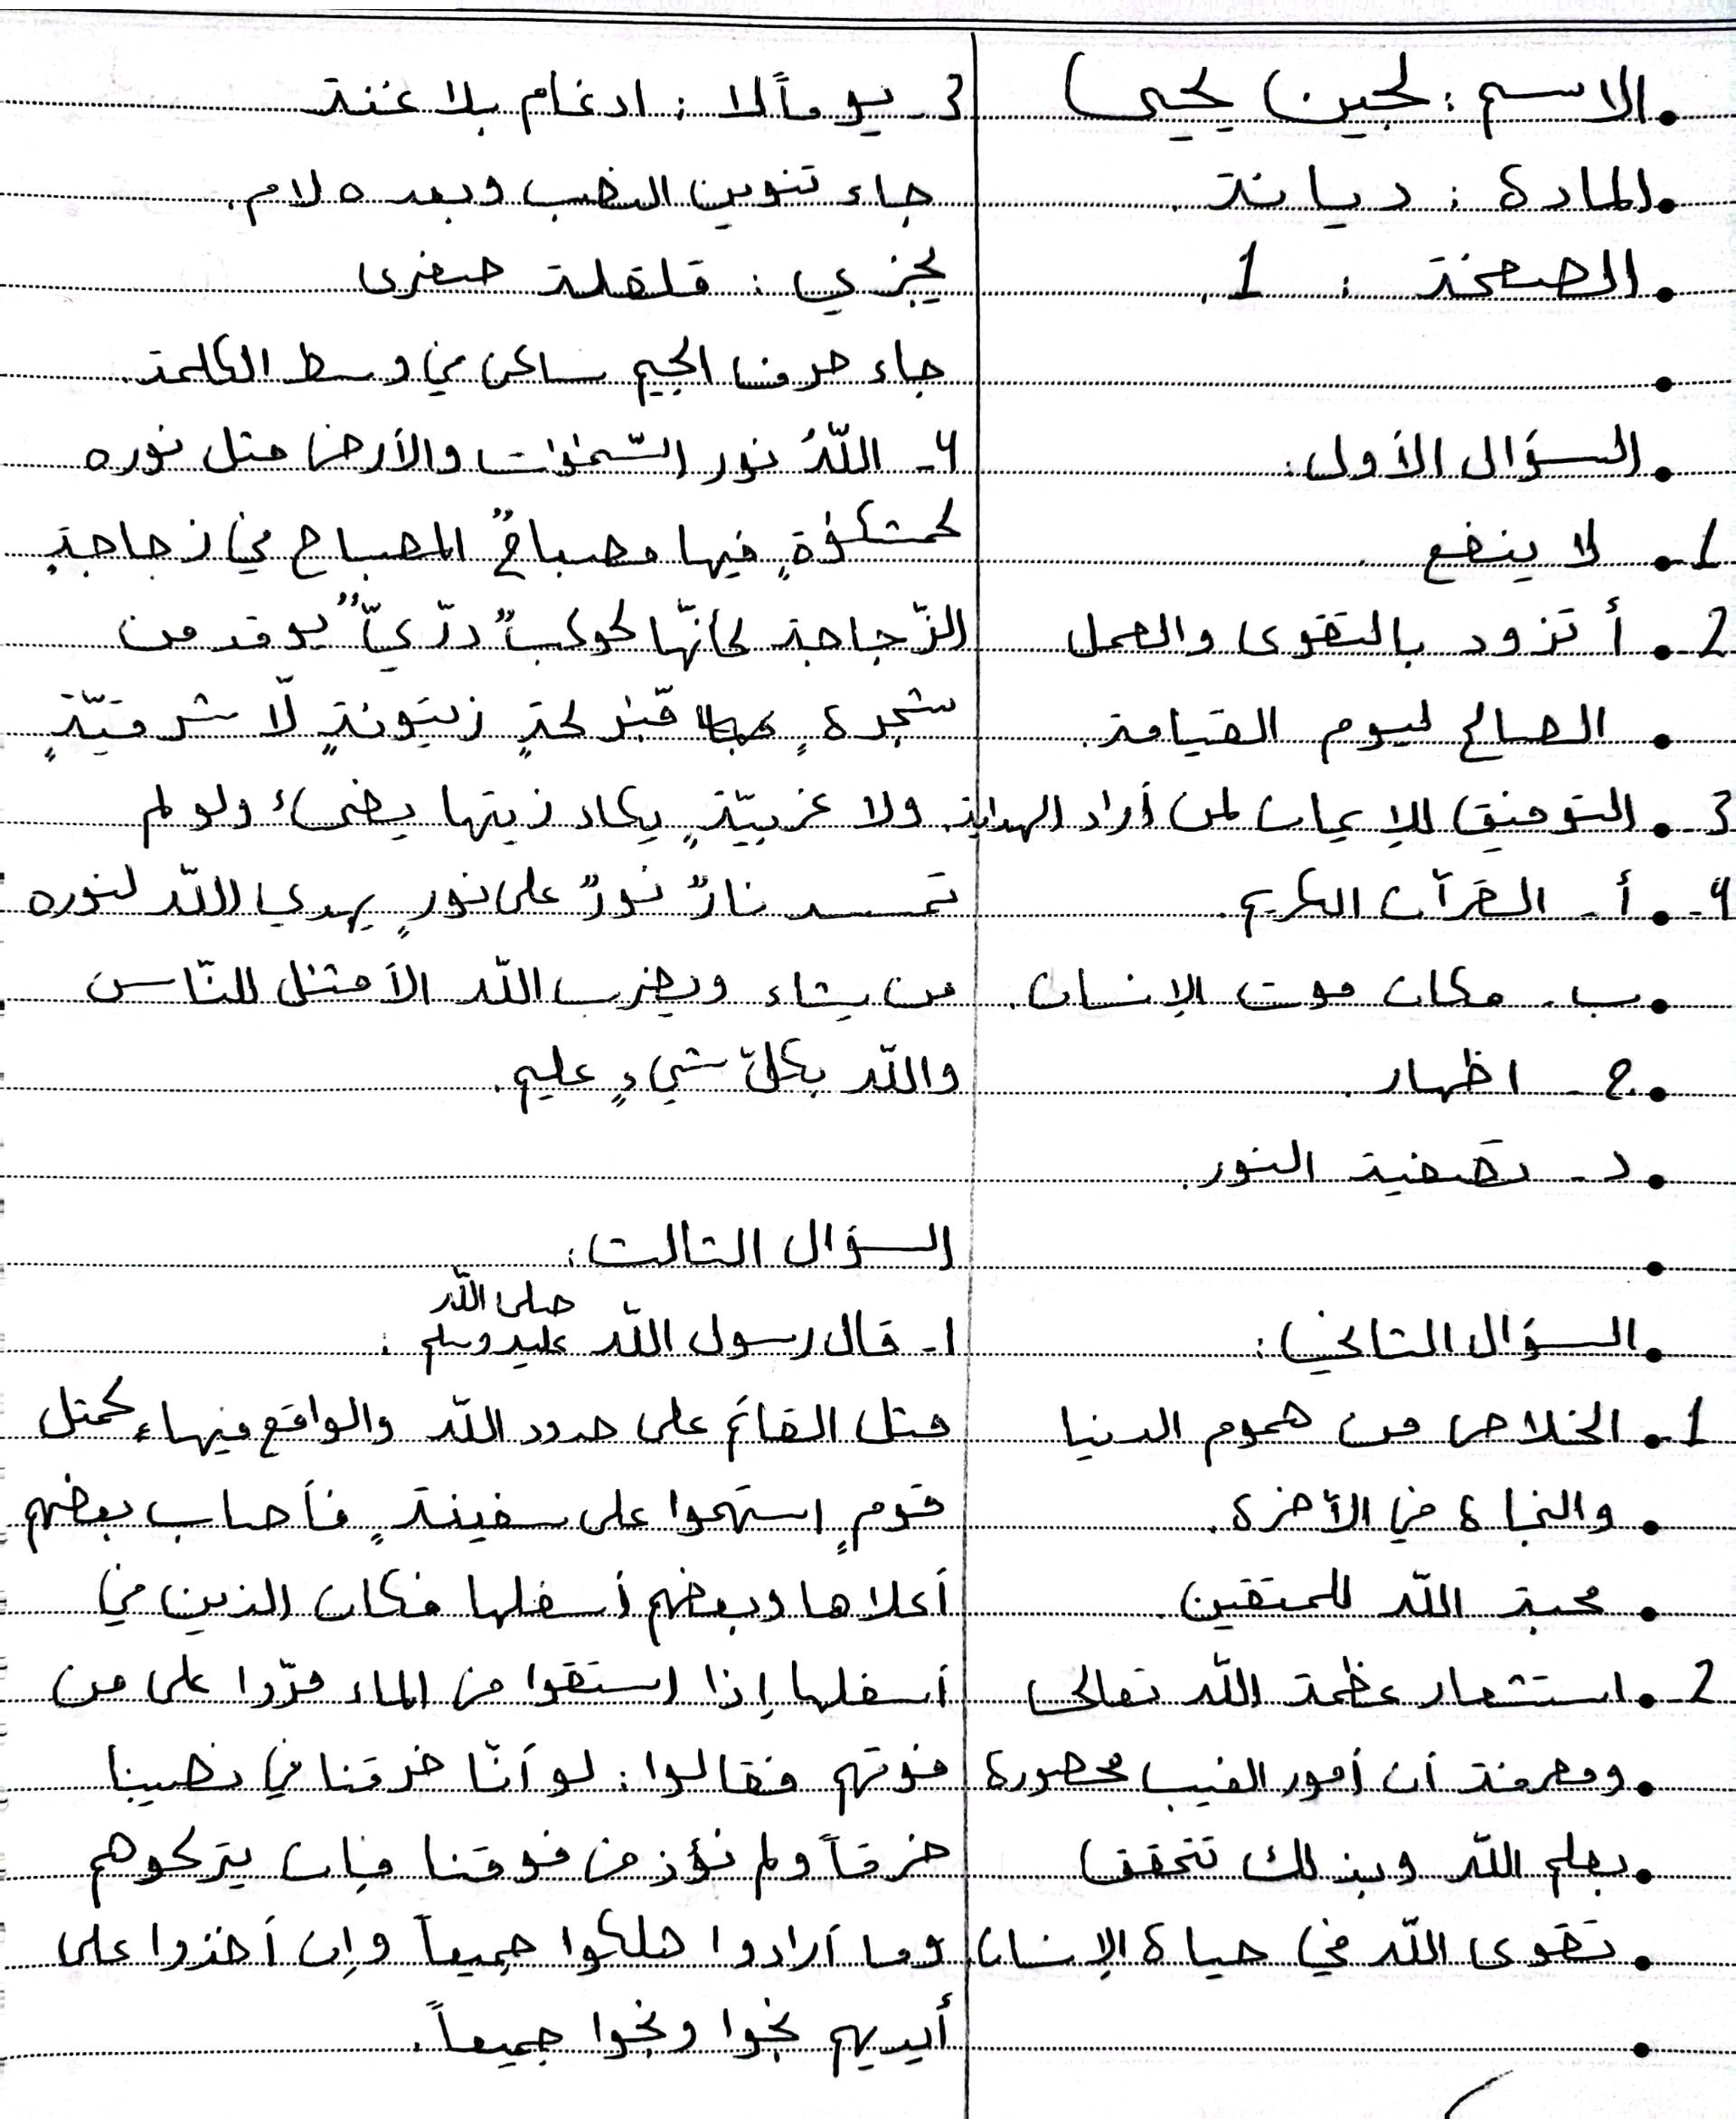 الاسم : لجين يحيى
المادة : ديانة
الصفحة : 1
السؤال الأول:
1. لا ينفع
2. أتزود بالتقوى والعمل
الصالح ليوم القيامة.
3. التوفيق للإيمان لمن أراد الهداية.
4. أ - القرآن الكريم.
ب - مكان موت الإنسان.
ج - اظهار.
د - تصفية النور.
السؤال الثاني:
1. الخلاص من هموم الدنيا
والنجاة في الآخرة.
محبة اللّه للمتقين.
2. استشعار عظمة اللّه تعالى
ومعرفة أن أمور الغيب محصورة
بعلم اللّه وبذلك تتحقق
تقوى اللّه في حياة الإنسان
3- يوماً لا : ادغام بلا غنة
جاء تنوين النصب وبعده لام.
يجزي : قلقلة صغرى
جاء حرف الجيم ساكن في وسط الكلمة
4- اللّهُ نور السّمٰوٰت والأرض مثل نوره
كمشكوٰةٍ فيها مصباحٌ المصباح في زجاجةٍ
الزّجاجة كأنّها كوكبٌ درّيٌّ يوقد من
شجرةٍ مّبٰركةٍ زيتونةٍ لّا شرقيّةٍ
ولا غربيّةٍ يكاد زيتها يضىء ولو لم
تمسسه نارٌ نورٌ على نورٍ يهدي اللّه لنوره
من يشاء ويضرب اللّه الأمثٰل للنّاس
واللّه بكلّ شيءٍ عليم.
السؤال الثالث:
1- قال رسول اللّه صلى اللّه عليه وسلم :
مثل القائم على حدود اللّه والواقع فيها، كمثل
قومٍ استهموا على سفينةٍ فأصاب بعضهم
أعلاها وبعضهم أسفلها فكان الذين في
أسفلها إذا استقوا من الماء مرّوا على من
فوقهم فقالوا: لو أنّا خرقنا في نصيبنا
خرقاً ولم نؤذ من فوقنا فإن يتركوهم
وما أرادوا هلكوا جميعاً وإن أخذوا على
أيديهم نجوا ونجوا جميعاً.